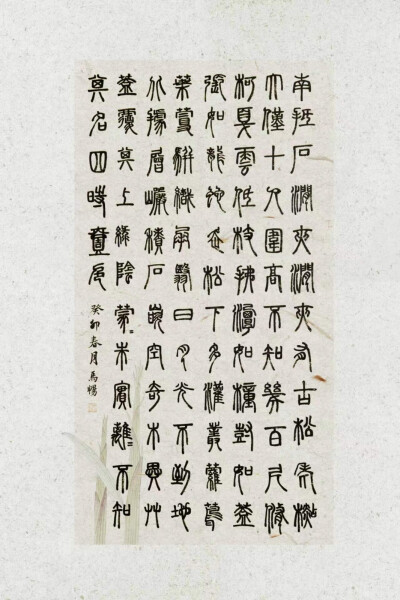 南抵石澗夾澗夾有古松老杉
大僅十人圍高不知幾百尺修
柯戛雲低枝拂潭如幢豎如蓋
張如龍蛇走松下多灌叢蘿蔦
葉蔓駢織承翳日月光不到地
據層巖積石嵌空奇木異艸
蓋覆其上綠陰蒙=朱實離=不知
其名四時壹色
癸卯春月馬暢